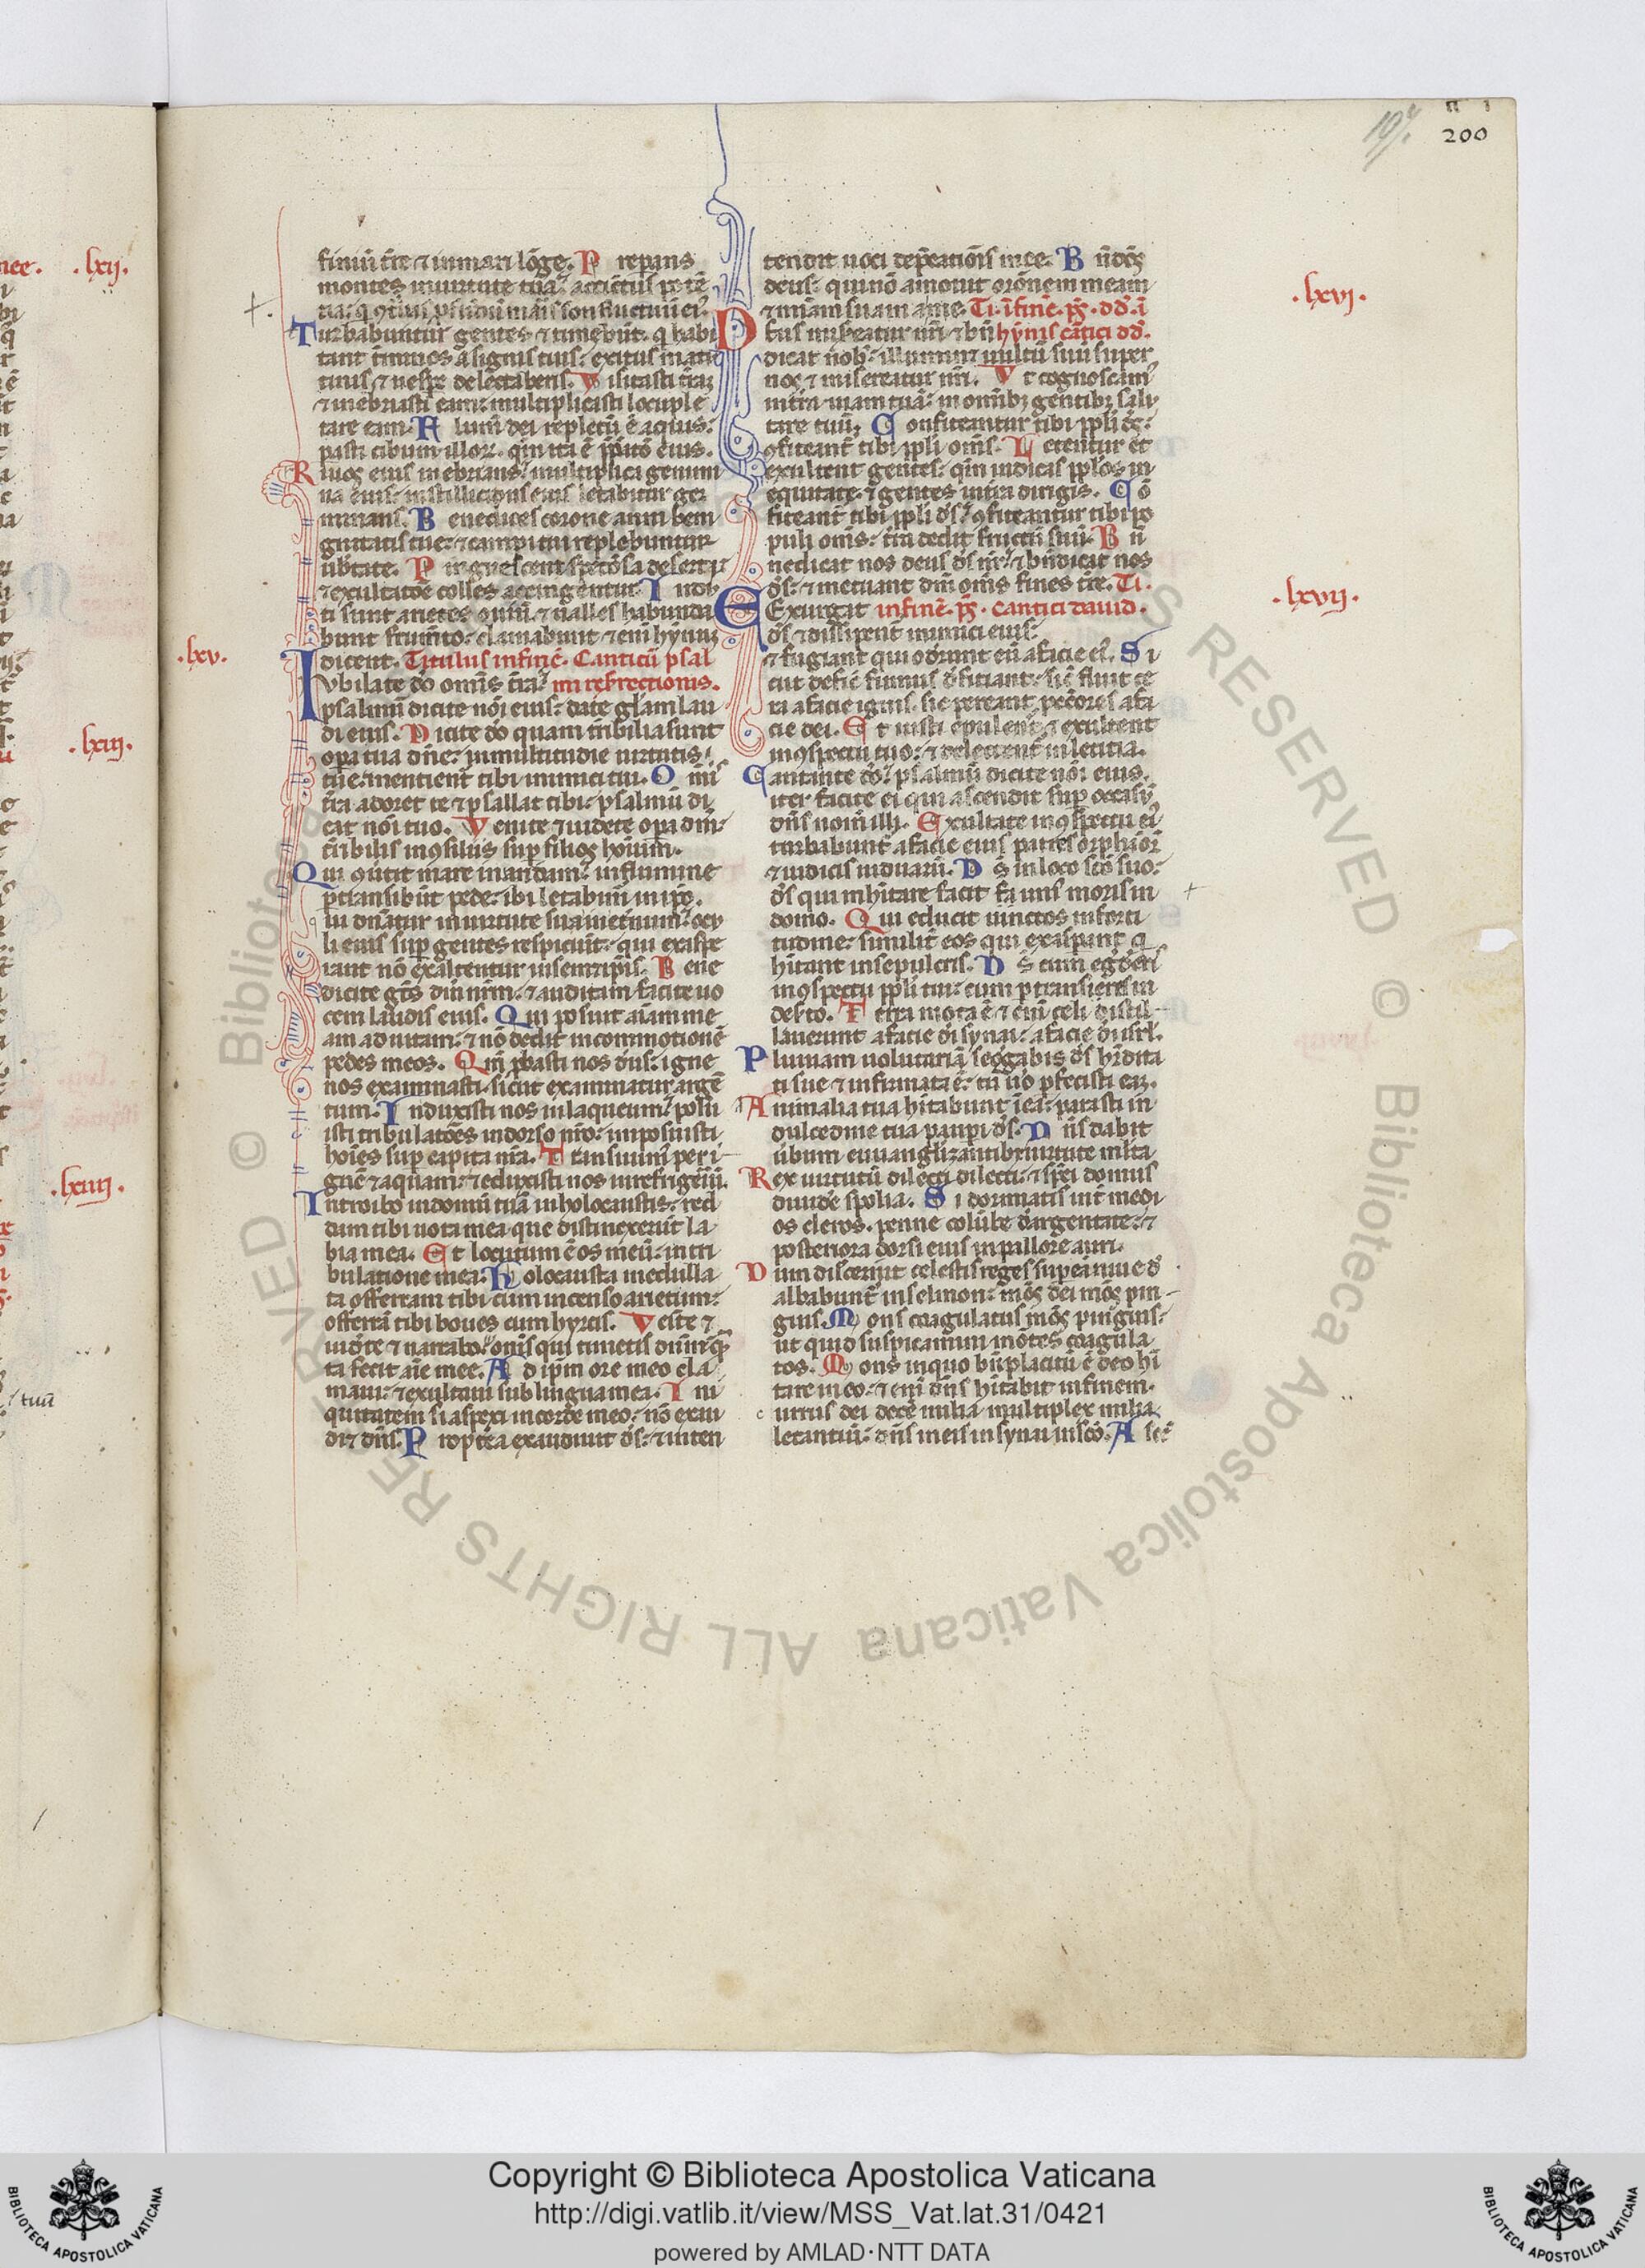 200
finiũ tr̃e ⁊ in mari lõge. P reparans
montes in uirtute tua: accĩctus potẽ
Turbabuntur gentes ⁊ timebũt. q̃ habi
tant t̃minos a signis tuis: exitus matu
tinis ⁊ uesp̃e delectaberis. V isitasti t̃raꝫ
⁊ inebriasti eam: multiplicasti locuple
tare eam. F lumẽ dei repletũ ẽ aquis:
parasti cibum illoꝝ. qm̃ ita ẽ p̃patio eius.
Riuos eius inebrians: multiplica genimi
na eius: in stillicidiis eius letabitur ger
minans. B enedices corone anni beni
gnitatis tue: ⁊ campi tui replebuntur
ub̃tate. P inguescent sp̃ciosa deserti
⁊ exultatiõe colles accingentur. I ndu
ti sunt arietes ouiũ. ⁊ ualles habunda
bunt frum̃to: clamabunt ⁊ enĩ hymnũ
.lxv.
dicent. Titulus in finẽ. Canticũ psal
Iubilate dõ omĩs t̃ra: mi resrectionis.
psalmũ dicite nõi eius: date glãm lau
di eius. D icite dõ quam t̃ribilia sunt
opa tua dñe: in multitudie uirtutis
tue mentient̃ tibi inimici tui. O mĩs
t̃ra adoret te ⁊ psallat tibi: psalmũ di
cat nõi tuo. V enite ⁊ uidete opa dñi:
t̃ribilis in ꝯsiliis sup̃ filios hoĩum.
Qui ꝯũtit mare in aridam: in flumine
p̃transibũt pede: ibi letabim̃ in ip̃o.
Qui dñatur in uirtute sua in et̃num: ocu
li eius sup̃ gentes respiciũt: qui exaspe
rant nõ exaltentur in semetip̃is. B ene
dicite gẽtes dm̃ nr̃m: ⁊ auditam facite uo
cem laudis eius. Q ui posuit aĩam me
am ad uitam: ⁊ nõ dedit in commotionẽ
pedes meos. Q m̃ p̃basti nos ds̃: igne
nos examinasti. sicut examinatur argẽ
tum. I nduxisti nos in laqueum: posu
isti tribulatiões in dorso nr̃o: imposuisti
hoĩes sup̃ capita nr̃a. T ransiuim̃ per i
gnẽ ⁊ aquam: ⁊ eduxisti nos in refrigeriũ.
Introibo in domũ tuã in holocaustis: red
dam tibi uota mea que distinxerũt la
bia mea. E t locutum ẽ os meũ: in tri
bulatione mea. H olocausta medulla
ta offeram tibi cum incenso arietum:
offerã tibi boues cum hyrcis. V enite ⁊
audite ⁊ narrabo: omĩs qui timetis dm̃ q̃n
ta fecit aĩe mee. A d ip̃m ore meo cla
maui: ⁊ exultaui sub lingua mea. I ni
quitatem si aspexi in corde meo: nõ exau
diet dñs. P ropt̃ea exaudiuit ds̃: ⁊ atten
tendit uoci dep̃cationis mee. B ñdc̃s
deus: qui nõ amouit or̃onem meam
.lxvi.
⁊ m̃iam suam a me. Ti. ĩ finẽ. ps̃. dd̃. ĩ
Deus miseatur nr̃i ⁊ bñ hymis cãtici dd̃.
dicat nob̃: illuminet uultũ suũ super
nos ⁊ misereatur nr̃i. V t cognoscam̃
in t̃ra uiam tuã: in omĩbꝫ gentibꝫ salu
tare tuũ. C onfiteantur tibi ppl̃i ds̃:
ꝯfiteant̃ tibi ppl̃i om̃s. L etentur et
exultent gentes: qm̃ iudicas ppl̃os in
equitate: ⁊ gentes in t̃ra dirigis. C õ
fiteant̃ tibi ppl̃i ds̃: ꝯfiteantur tibi po
puli om̃s: t̃ra dedit fructũ suũ. B ñ
nedicat nos deus ds̃ nr̃: ⁊ bñdicat nos
ds̃: ⁊ metuant dm̃ om̃s fines t̃re. Ti.
.lxvii.
Exurgat in finẽ. ps̃. Cantici dauid.
ds̃ ⁊ dissipent̃ inimici eius:
⁊ fugiant qui oderunt eũ a facie ei̾. Si
cut defic̃ fumus deficiant: sic̃ fluit ce
ra a facie ignis. sic pereant pec̃ores a fa
cie dei. E t iusti epulent̃ ⁊ exultent
in ꝯspectu tuo: ⁊ delectent̃ in letitia.
Cantate dõ: psalmũ dicite nõi eius.
iter facite ei qui ascendit sup̃ occasũ
dñs nom̃ illi. E xultate in ꝯspectu ei̾
turbabunt̃ a facie eius patris orphãoꝝ
⁊ iudicis uiduarũ. D s̃ in loco sc̃o suo:
ds̃ qui inhitare facit faunis moris in
domo. Q ui educit uinctos in forti
tudine: similit̃ eos qui exaspant q̃
hitant in sepulcris. D s̃ cum egr̃deris
in ꝯspectu ppl̃i tui: cum p̃transieris in
des̃to. T erra mota ẽ ⁊ enĩ celi distil
lauerunt a facie dĩ synai: a facie dĩ isrl̃.
Pluuiam uolutariã seg̃gabis ds̃ hr̃dita
ti sue ⁊ infirmata ẽ: tu ũo p̃fecisti eaꝫ.
Animalia tua hitabunt ĩ ea: parasti in
dulcedine tua paupi ds̃. D ñs dabit
ũbum euuanglizantibꝫ uirtute m̃lta
Rex uirtutũ dilecti dilecti: ⁊ sp̃ei domus
diuide spolia. S i dormiatis int̃ medi
os cleros. penne colũbe deargentate: ⁊
posteriora dorsi eius in pallore auri.
Dum discernit celestis reges sup̃ eã niue d̾
albabunt̃ in selmon: mõs dei mõs pin
guis. M ons coagulatus mõs pinguis:
ut quid suspicamini mõtes coagula
tos. M ons in quo bñplacitũ ẽ deo hĩ
tare in eo: ⁊ enĩ dñs hitabit in finem.
Currus dei decẽ milia multiplex milia
letantiũ: dñs in eis in synai in sc̃o. A sc̃e
.lxii.
.lxiii.
.lxiiii.
tuũ
Copyright © Biblioteca Apostolica Vaticana
http://digi.vatlib.it/view/MSS_Vat.lat.31/0421
powered by AMLAD·NTT DATA
BIBLIOTECA APOSTOLICA VATICANA
BIBLIOTECA APOSTOLICA VATICANA
© Biblioteca Apostolica Vaticana ALL RIGHTS RESERVED